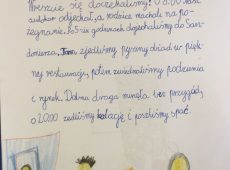 Wreszcie się doczekaliśmy! O 8:00 nasz
autokar odjechał, a rodzice machali na po-
żegnanie. Po 5-iu godzinach dojechaliśmy do San-
domierza. Tam zjedliśmy pyszny obiad w pięk-
nej restauracji, potem zwiedzaliśmy podziemia
i rynek. Dalsza droga minęła bez przygód,
o 20:00 zjedliśmy kolację i poszliśmy spać.